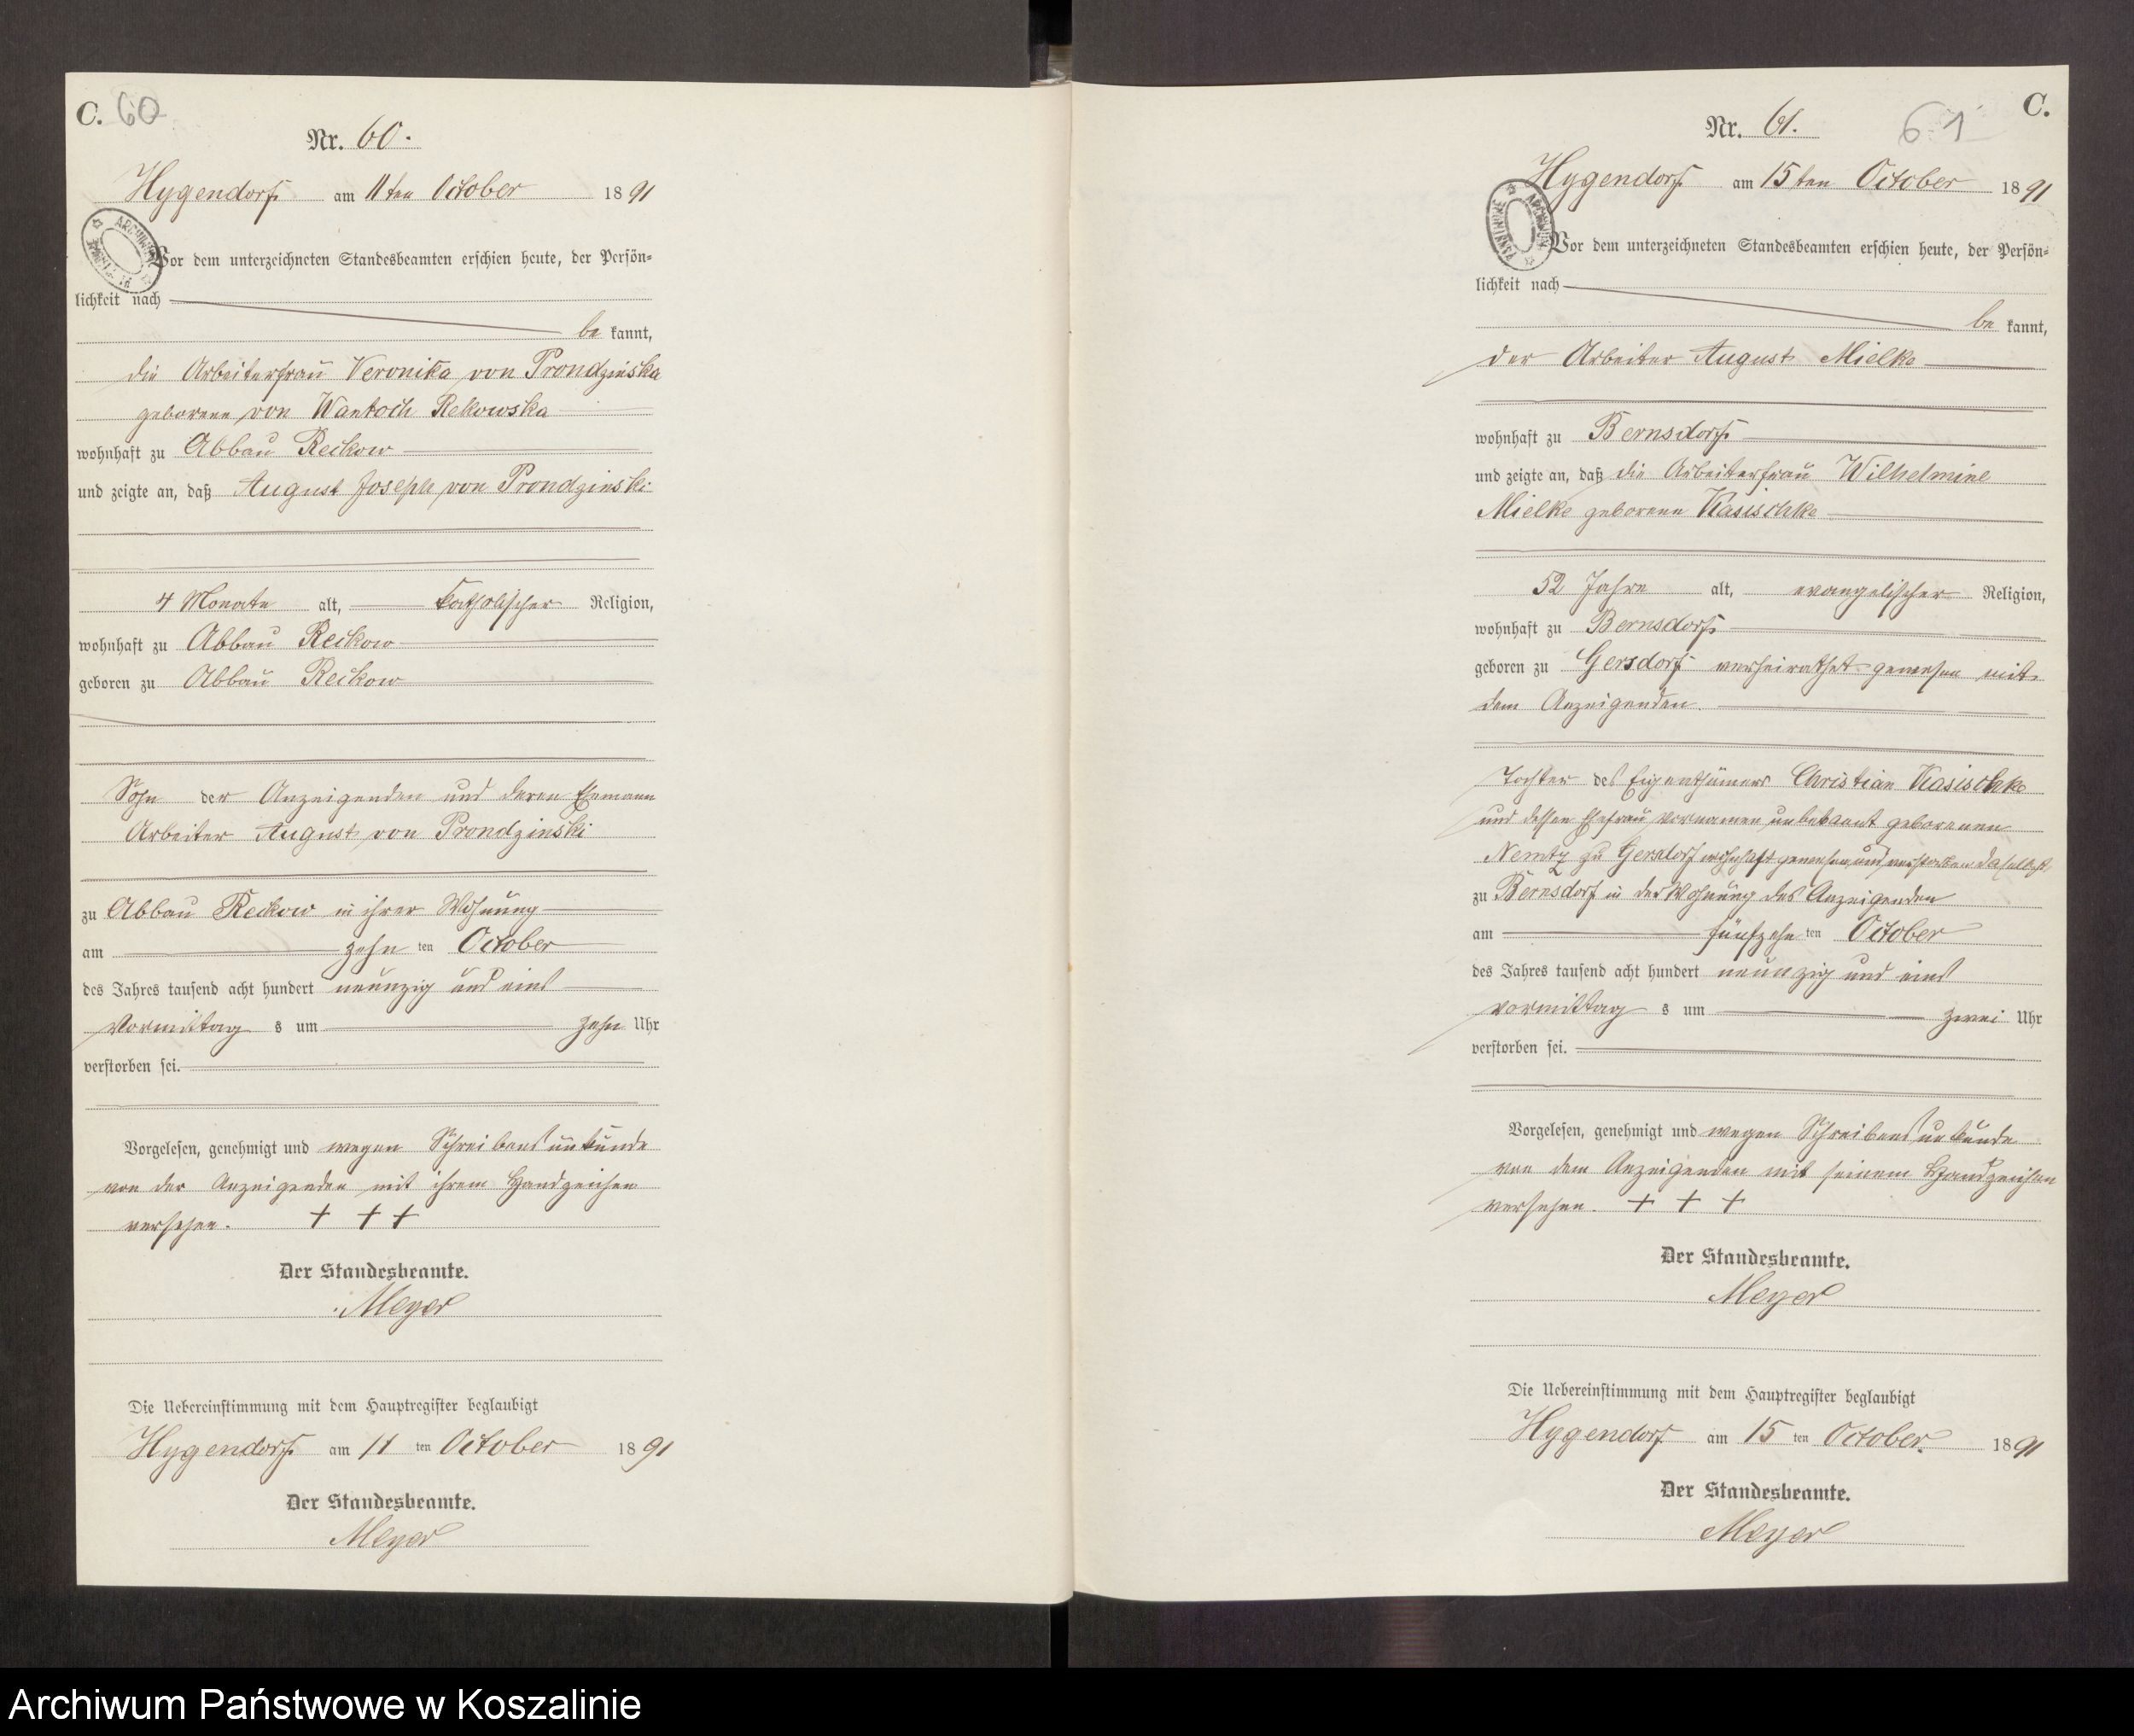 C. 60
Nr. 60.
Hygendorf am 11ten October 1891
Vor dem unterzeichneten Standesbeamten erschien heute, der Persön-
lichkeit nach
be kannt,
die Arbeiterfrau Veronika von Prondzinska
geborene von Wantoch Rekowska
wohnhaft zu Abbau Reckow
und zeigte an, daß August Joseph von Prondzinski
4 Monate alt, katholischer Religion,
wohnhaft zu Abbau Reckow
geboren zu Abbau Reckow
Sohn der Anzeigenden und deren Ehemann
Arbeiter August von Prondzinski
zu Abbau Reckow in ihrer Wohnung
am zehn ten October
des Jahres tausend acht hundert neunzig und eins
Vormittag s um zehn Uhr
verstorben sei.
Vorgelesen, genehmigt und wegen Schreibensunkunde
von der Anzeigenden mit ihrem Handzeichen
versehen. + + +
Der Standesbeamte.
Meyer
Die Uebereinstimmung mit dem Hauptregister beglaubigt
Hygendorf am 11 ten October 1891
Der Standesbeamte.
Meyer
C.
Nr. 61. 61
Hygendorf am 15ten October 1891
Vor dem unterzeichneten Standesbeamten erschien heute, der Persön-
lichkeit nach
be kannt,
der Arbeiter August Mielke
wohnhaft zu Bernsdorf
und zeigte an, daß die Arbeiterfrau Wilhelmine
Mielke geborene Kasischke
52 Jahre alt, evangelischer Religion,
wohnhaft zu Bernsdorf
geboren zu Gersdorf verheirathet gewesen mit
dem Anzeigenden.
Tochter des Eigenthümers Christian Kasischke
und dessen Ehefrau vornamen unbekannt geborenen
Nemtz zu Gersdorf wohnhaft gewesen und verstorben daselbst
zu Bernsdorf in der Wohnung des Anzeigenden
am fünfzehn ten October
des Jahres tausend acht hundert neunzig und eins
vormittag s um zwei Uhr
verstorben sei.
Vorgelesen, genehmigt und wegen Schreibensunkunde
von dem Anzeigenden mit seinem Handzeichen
versehen. + + +
Der Standesbeamte.
Meyer
Die Uebereinstimmung mit dem Hauptregister beglaubigt
Hygendorf am 15 ten October 1891
Der Standesbeamte.
Meyer
Archiwum Państwowe w Koszalinie